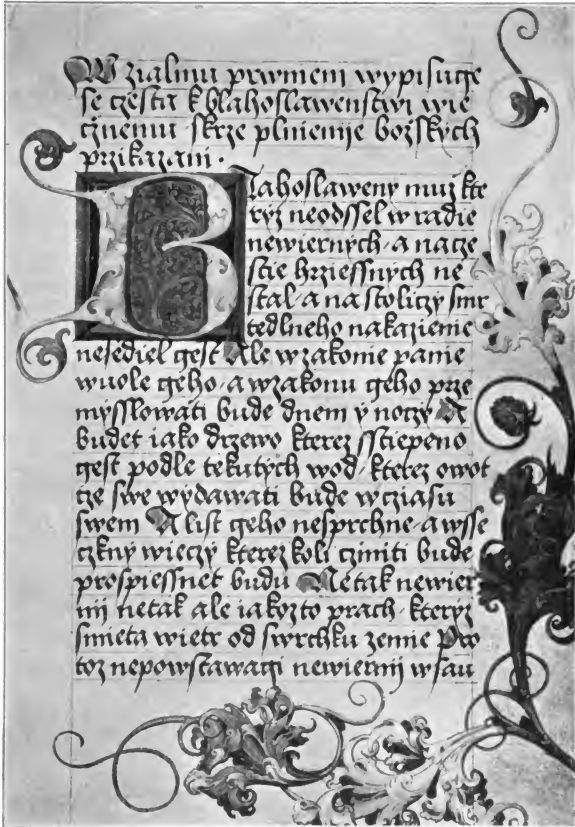 W zialmu prwmem wypisuge
se czesta k blahoslawenstwi wie
cznemu skrze plnienije bozskych
przikazani ·
Blahoslaweny muz kte
ryz neodssel w radie
newiernych · a na cze
stie hrziessnych ne
stal · a na stoliczy smr
tedlneho nakazienie
nesediel gest Ale w zakonie panie
wuole geho · a w zakonu geho prze
mysslowati bude dnem y noczy A
budet iako drzewo kterez sstiepeno
gest podle tekutych wod · kterez owot
cze swe wydawati bude w cziasu
swem A list geho nesprchne · a wsse
czkny wieczy kterez koli cziniti bude
prospiessnet budu Ne tak newier
nij ne tak ale iakozto prach · kteryz
smieta wietr od swrchku zemie Pro
toz nepowstawagi newiernij w sau